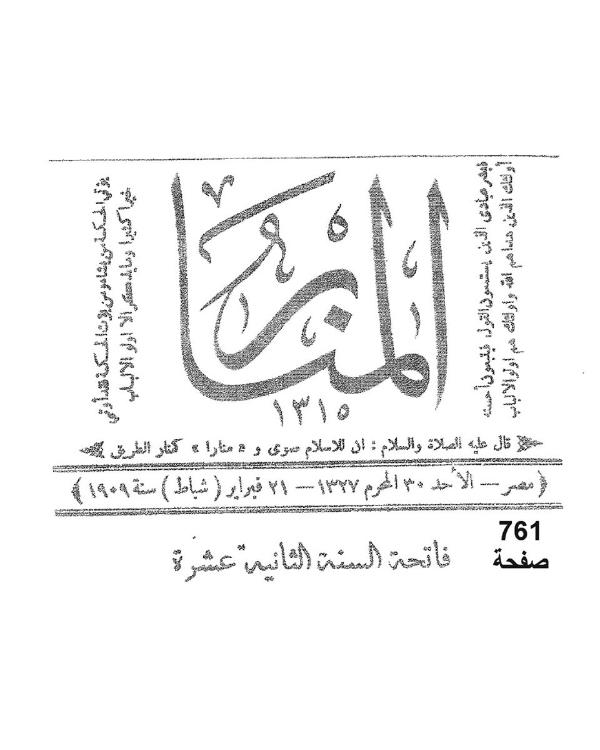 فبشر عبادي الذين يستمعون القول فيتبعون أحسنه
أولئك الذين هداهم الله وأولئك هم أولو الالباب
المنار
١٣١٥
يؤتي الحكمة من يشاء ومن يؤت الحكمة فقد أوتي
خيرا كثيرا وما يذكر الا اولو الالباب
قال عليه الصلاة والسلام : ان للاسلام صوى و « منارا » كمنار الطريق
( مصر — الأحد ٣٠ المحرم ١٣٢٧ — ٢١ فبراير ( شباط ) سنة ١٩٠٩ )
761
صفحة
فاتحة السنة الثانية عشرة